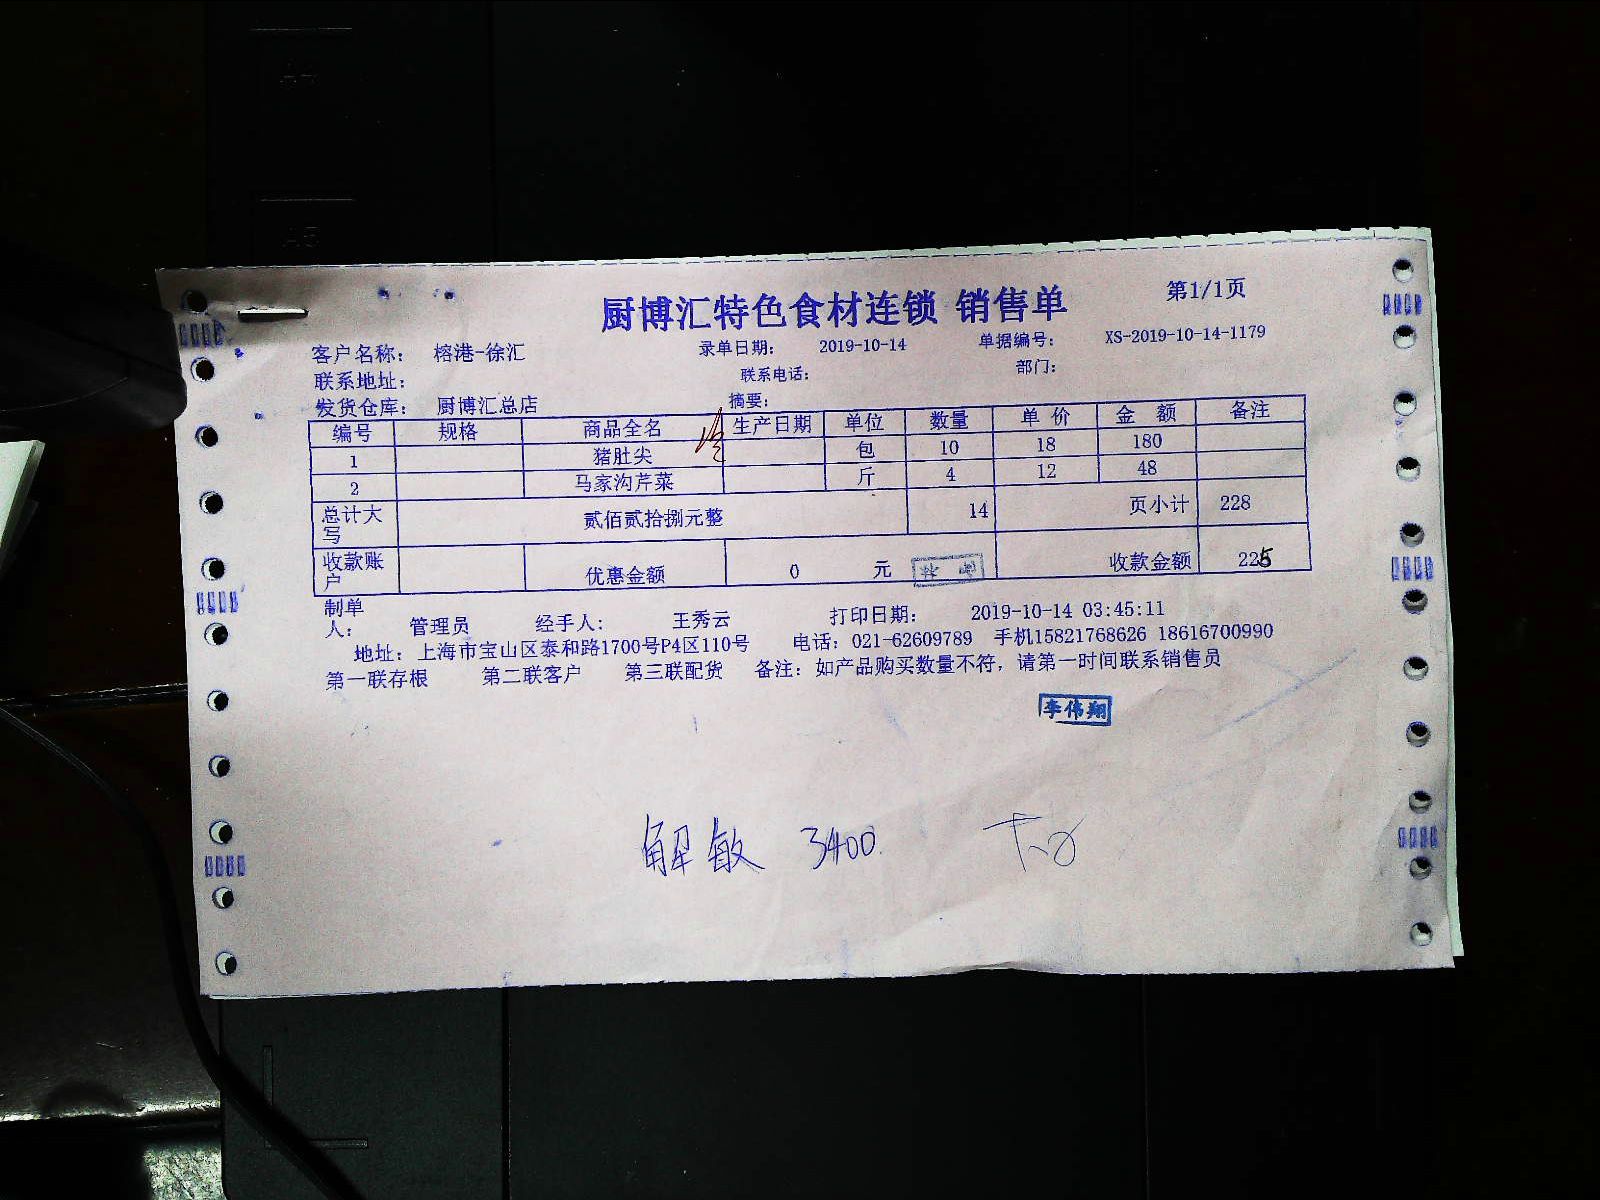 A4
A5
厨博汇特色食材连锁 销售单 第1/1页
客户名称： 榕港-徐汇 录单日期： 2019-10-14 单据编号： XS-2019-10-14-1179
联系地址： 联系电话： 部门：
发货仓库： 厨博汇总店 摘要：
编号 规格 商品全名 生产日期 单位 数量 单 价 金 额 备注
1 猪肚尖 包 10 18 180
2 马家沟芹菜 斤 4 12 48
总计大写 贰佰贰拾捌元整 14 页小计 228
收款账户 优惠金额 0 元 收款金额 225
制单人： 管理员 经手人： 王秀云 打印日期： 2019-10-14 03:45:11
地址：上海市宝山区泰和路1700号P4区110号 电话：021-62609789 手机15821768626 18616700990
第一联存根 第二联客户 第三联配货 备注：如产品购买数量不符，请第一时间联系销售员
李伟翔
解敏 3400.